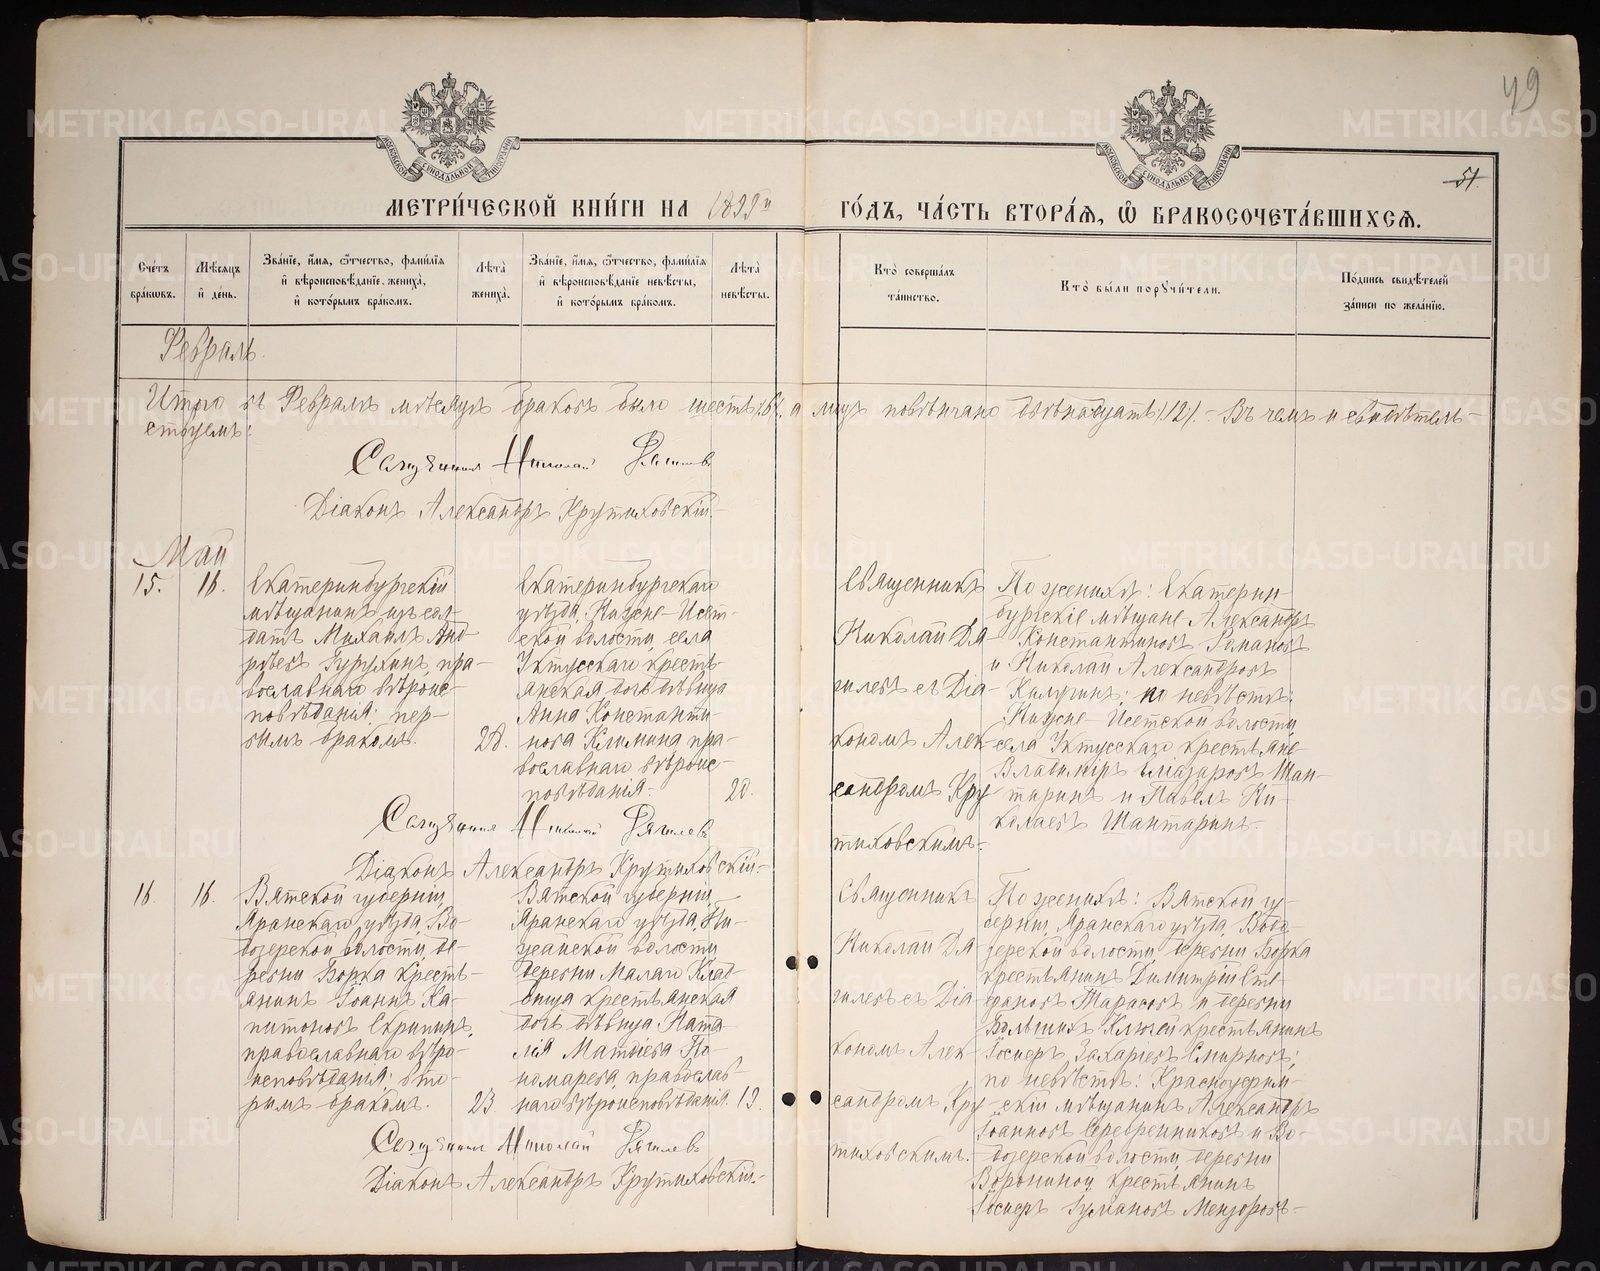 49
51
МЕТРИ́ЧЕСКОЙ КНИ́ГИ НА 1899й ГО́ДЪ, ЧА́СТЬ ВТОРА́Ѧ, Ѽ БРАКОСОЧЕТА́ВШИХСѦ.
Сче́тъ бра́кωвъ.
Мѣ́сѧцъ и҆ де́нь.
Зва́нїе, и҆́мѧ, ѻ҆́тчество, фами́лїѧ и҆ вѣроисповѣ́данїе женихա̀, и҆ кото́рымъ бра́комъ.
Лѣ́та̀ жениха̀.
Зва́нїе, и҆́мѧ, ѻ҆́тчество, фами́лїѧ и҆ вѣроисповѣ́данїе невѣ́сты, и҆ кото́рымъ бра́комъ.
Лѣ́та̀ невѣ́сты.
Кто̀ соверша́лъ та́инство.
Кто̀ бы́ли порꙋчи́тели.
По́дпись свидѣ́телей за́писи по жела́нїю.
Февраль.
Итого въ Февралѣ мѣсяцѣ браковъ было шесть /6/. а лицъ повѣнчано двѣнадцать /12/. – Въ чемъ и свидѣтель-
ствуемъ:
Священникъ Николай
Діаконъ Александръ Крутиховскій.
Май
15. 16.
Екатеринбургскій
мѣщанинъ изъ сол-
датъ Михаилъ Анд-
реевъ
православнаго вѣроис-
повѣданія; пер-
вымъ бракомъ.
28.
Екатеринбургскаго
уѣзда, Нижне-Исет-
ской волости, села
Уктусскаго кресть-
янская дочь дѣвица
Анна Константи-
нова Климина пра-
вославнаго вѣроис-
повѣданія.
20.
Священникъ
Николай Дя
гилевъ съ Діа-
кономъ Алек-
сандромъ Кру
тиховскимъ.
По женихѣ: Екатерин-
бургскіе мѣщане Александръ
Константиновъ Романовъ
и Николай Александровъ
Калугинъ; по невѣстѣ:
Нижне-Исетской волости,
села Уктусскаго крестьяне
Владиміръ Елизаровъ Шан-
таринъ и Павелъ Ни-
колаевъ Шантаринъ.
Священникъ Николай Дягилевъ
Діаконъ Александръ Крутиховскій.
16. 16.
Вятской губерніи,
Яранскаго уѣзда, Во-
дозерской волости, де-
ревни Борка кресть-
янинъ Іоаннъ Ка-
питоновъ Скрипинъ,
православнаго вѣро-
исповѣданія; вто-
рымъ бракомъ.
23.
Вятской губерніи,
Яранскаго уѣзда,
волости
деревни Малаго Клад-
бища крестьянская
дочь дѣвица Ната-
лія Матѳіева По-
номарева, православ-
наго вѣроисповѣданія.
19.
Священникъ
Николай Дя
гилевъ съ Діа-
кономъ Алек-
сандромъ Кру
тиховскимъ.
По женихѣ: Вятской гу-
берніи, Яранскаго уѣзда, Водо-
зерской волости, деревни Борка
крестьянинъ Димитрій Сте-
фановъ Тарасовъ и деревни
Большихъ Ключей крестьянинъ
Іосифъ Захаріевъ Смирновъ;
по невѣстѣ: Красноуфим-
скій мѣщанинъ Александръ
Іоанновъ Серебренниковъ и Во-
дозерской волости, деревни
Ворониной крестьянинъ
Іосифъ
Священникъ Николай Дягилевъ
Діаконъ Александръ Крутиховскій.
METRIKI.GASO-URAL.RU